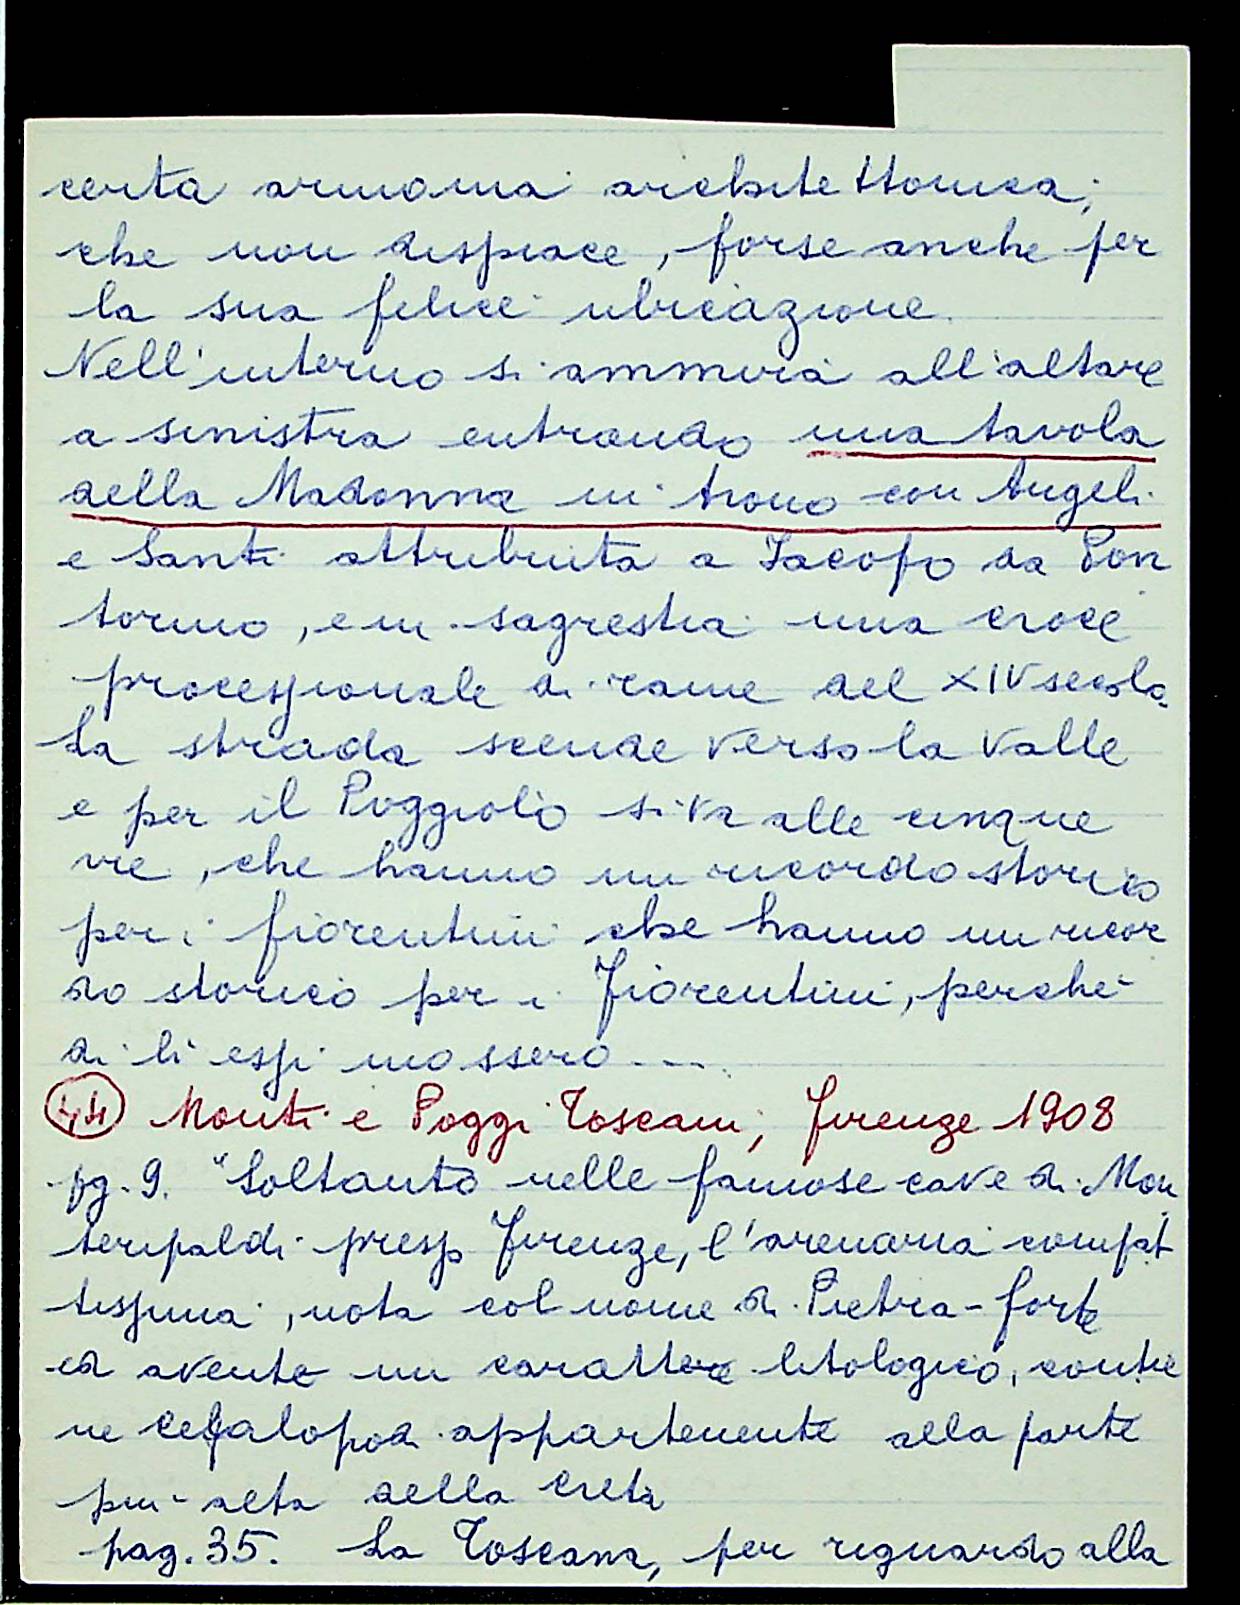 certa armonia architettonica,
che non dispiace, forse anche per
la sua felice ubicazione.
Nell'interno si ammira all'altare
a sinistra entrando una tavola
della Madonna in trono con Angeli
e Santi attribuita a Iacopo da Pon
tormo, e in sagrestia una croce
processionale di rame del XIV secolo.
La strada scende verso la Valle
e per il Poggiolo si va alle cinque
vie, che hanno un ricordo storico
per i fiorentini che hanno un ricor
do storico per i Fiorentini, perché
di lì essi mossero ....
44 Monti e Poggi Toscani, Firenze 1908
pg. 9. "Soltanto nelle famose cave di Mon
teripaldi presso Firenze, l'arenaria compat
tissima, nota col nome di Pietra-forte
ed avente un carattere litologico, contie
ne cefalopodi appartenente alla parte
più alta della creta
pag. 35. La Toscana, per riguardo alla